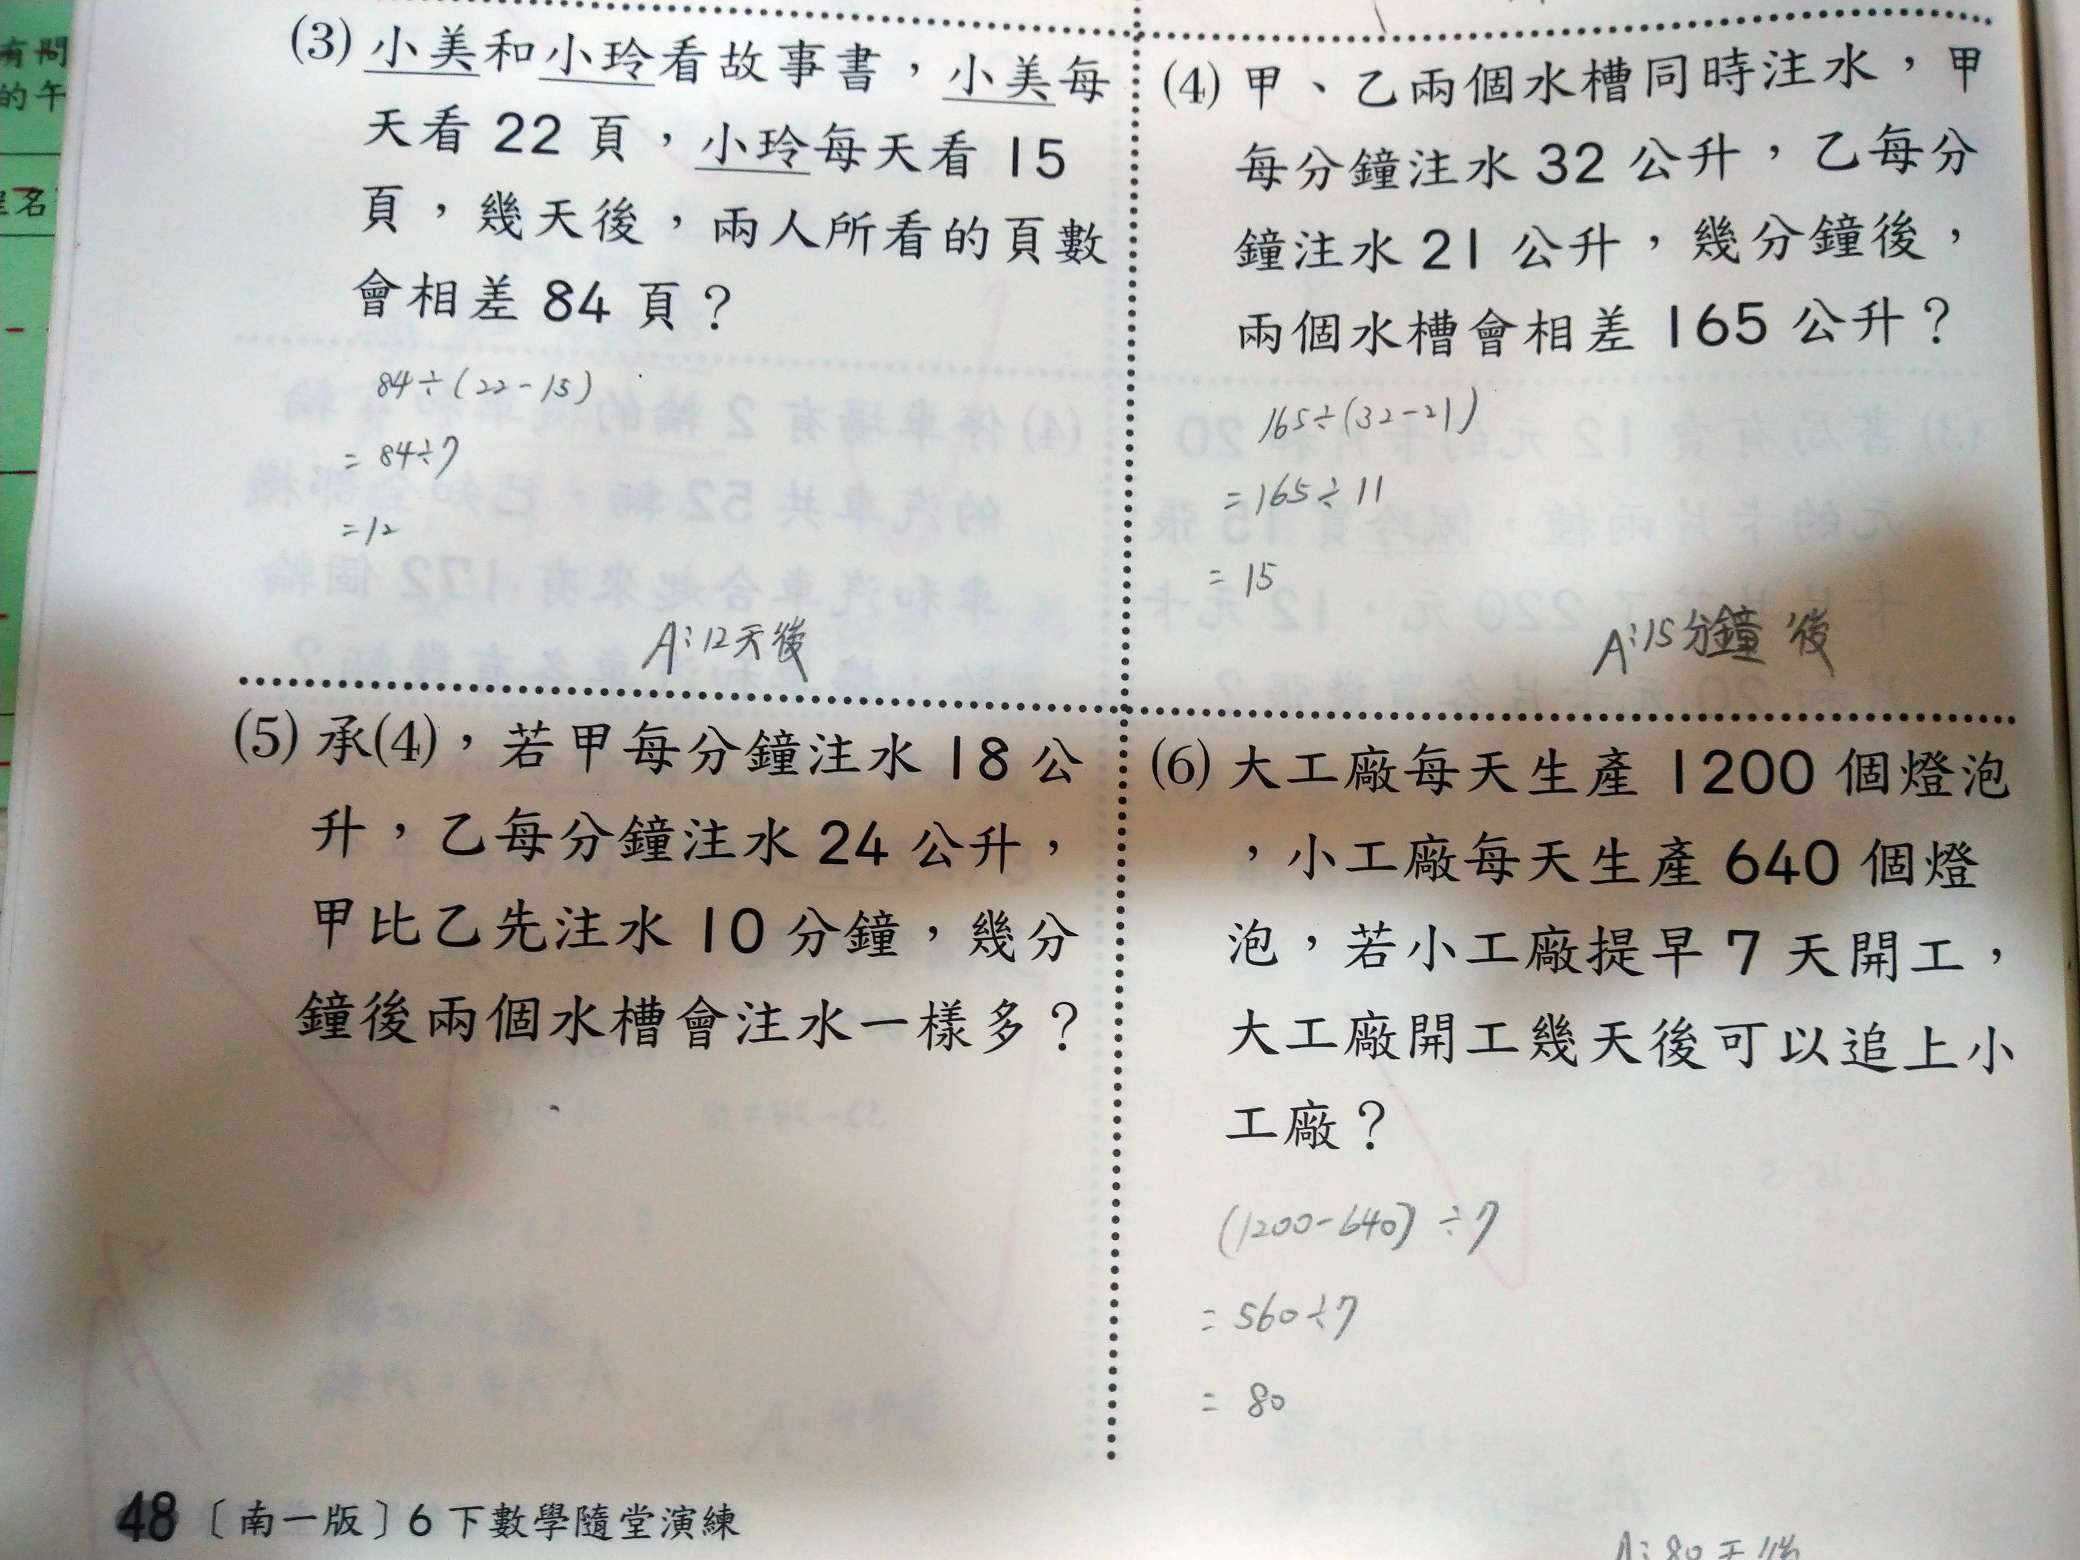 有問
的午
名
(3) 小美和小玲看故事書，小美每
天看 22 頁，小玲每天看 15
頁，幾天後，兩人所看的頁數
會相差 84 頁？
84÷(22-15)
= 84÷7
=12
A:12天後
(4) 甲、乙兩個水槽同時注水，甲
每分鐘注水 32 公升，乙每分
鐘注水 21 公升，幾分鐘後，
兩個水槽會相差 165 公升？
165÷(32-21)
=165÷11
= 15
A:15分鐘後
(5) 承(4)，若甲每分鐘注水 18 公
升，乙每分鐘注水 24 公升，
甲比乙先注水 10 分鐘，幾分
鐘後兩個水槽會注水一樣多？
(6) 大工廠每天生產 1200 個燈泡
，小工廠每天生產 640 個燈
泡，若小工廠提早 7 天開工，
大工廠開工幾天後可以追上小
工廠？
(1200-640)÷7
= 560÷7
= 80
A:80天後
48〔南一版〕6 下數學隨堂演練